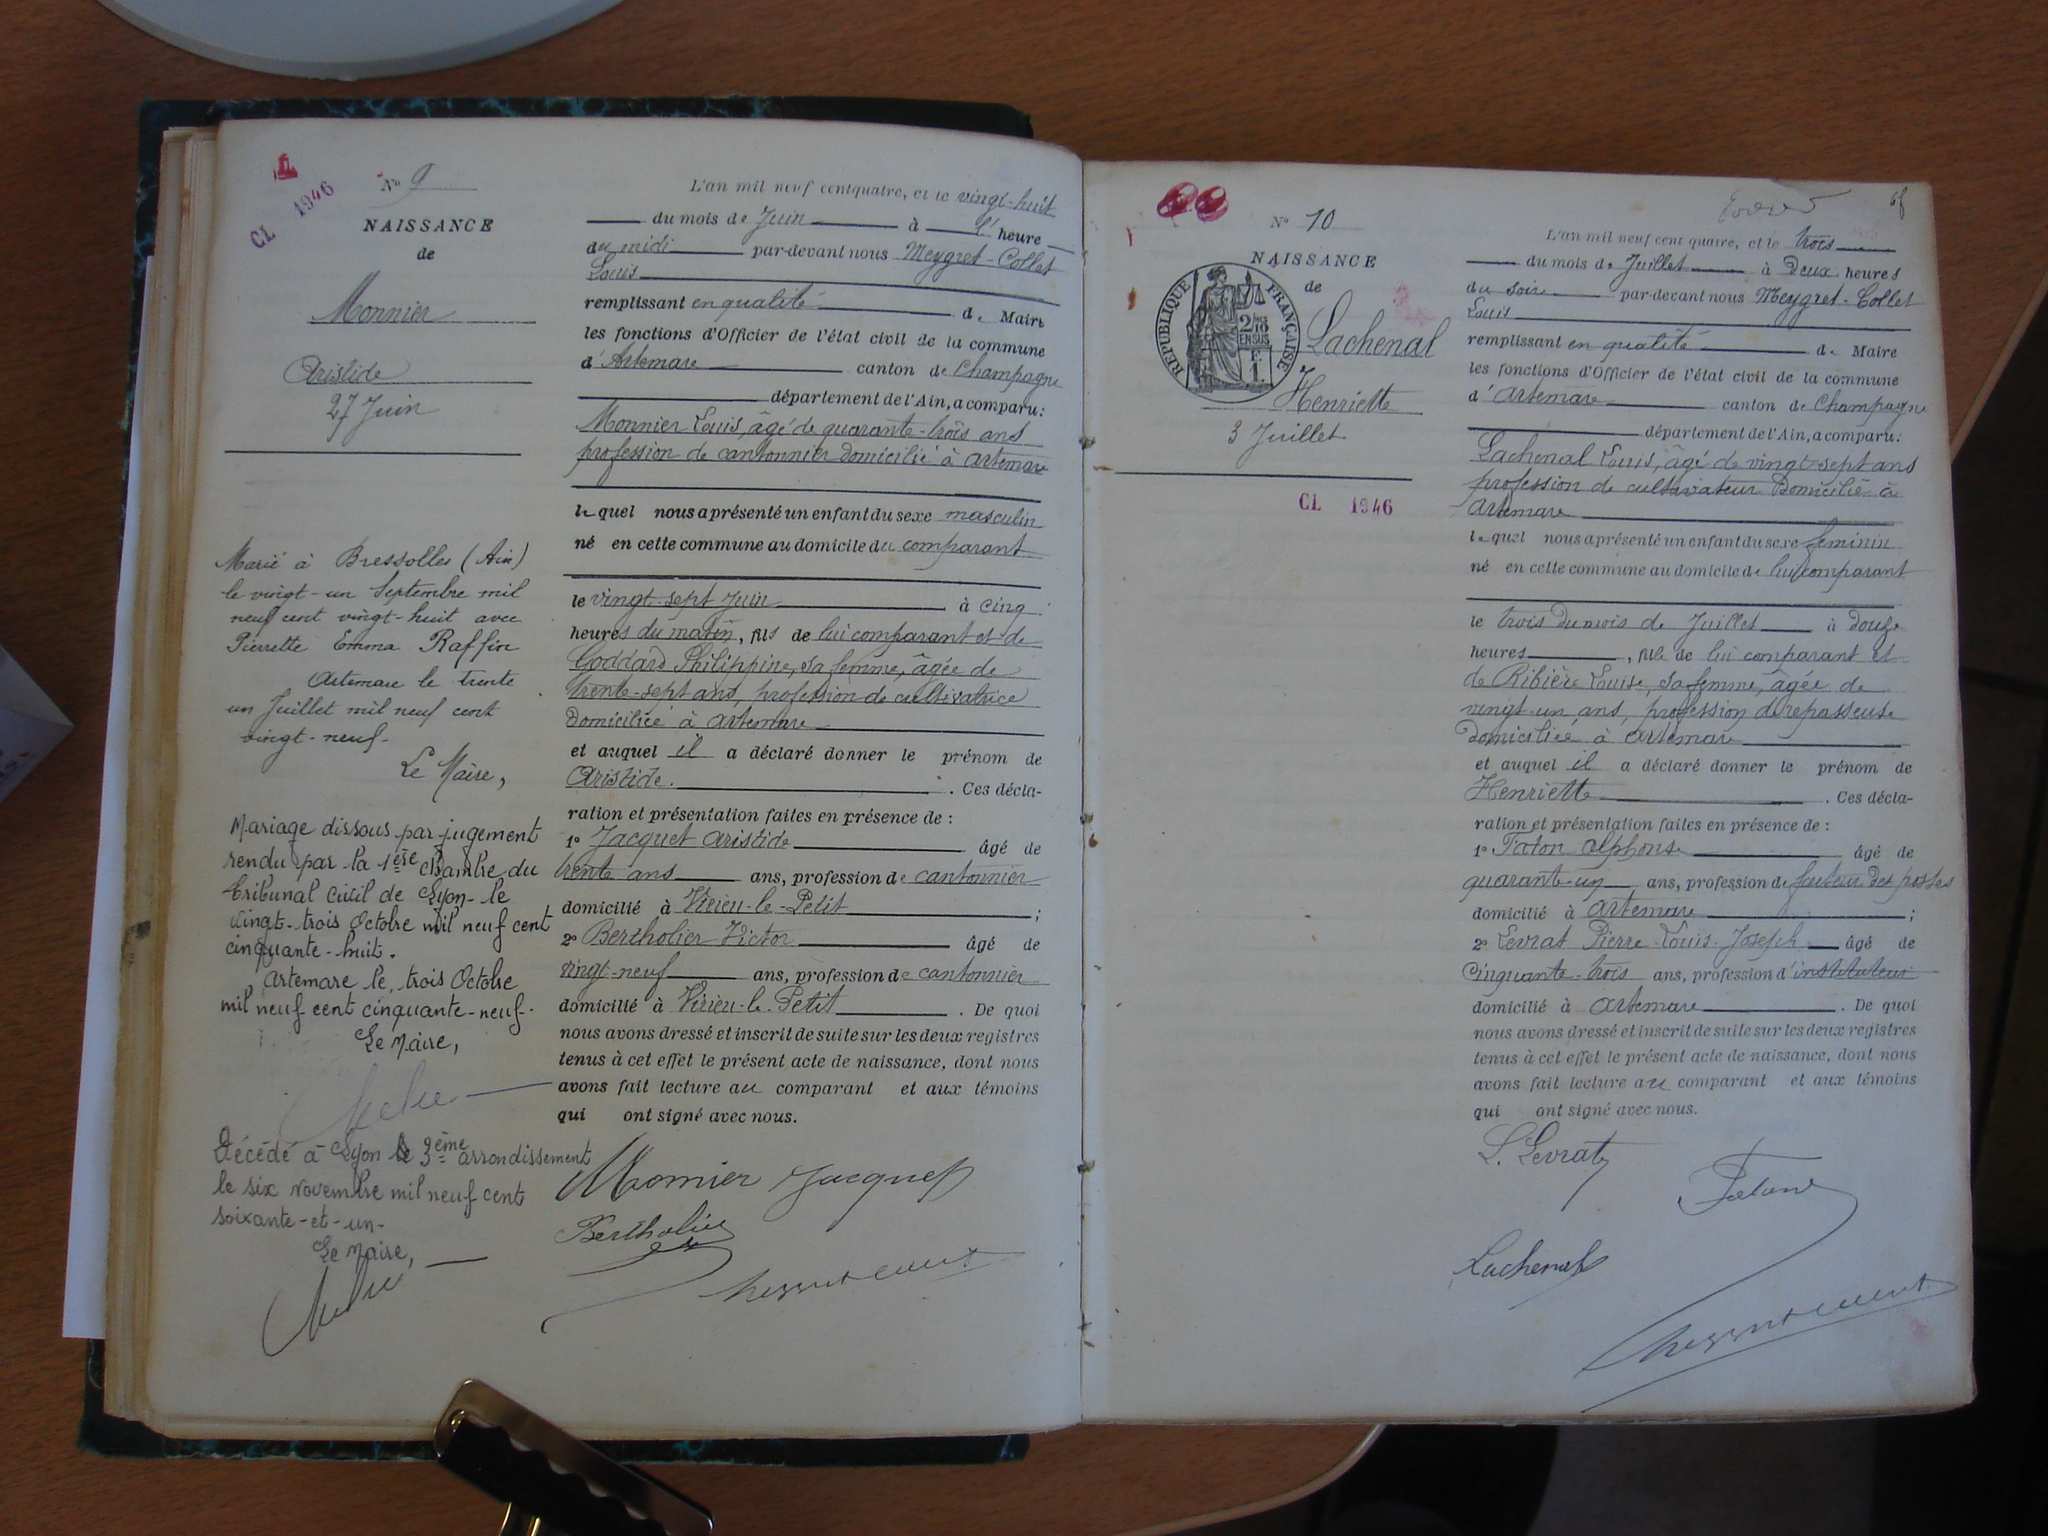 CL 1946
No 9
NAISSANCE
de
Monnier
Aristide
27 Juin
Marié à Bressolles (Ain)
le vingt-un Septembre mil
neuf cent vingt-huit avec
Pierrette Emma Raffin
Artemare le trente
un Juillet mil neuf cent
vingt-neuf-
Le Maire,
Mariage dissous par jugement
rendu par la 1ère chambre du
tribunal civil de Lyon le
vingt-trois Octobre mil neuf cent
cinquante-huit.
Artemare le, trois Octobre
mil neuf cent cinquante-neuf-.
Le Maire,
Décédé à Lyon 3ème arrondissement
le six Novembre mil neuf cent
soixante-et-un-
Le Maire,
L'an mil neuf cent quatre, et le vingt-huit
du mois de Juin à heure
du midi par-devant nous Meygret-Collet
Louis
remplissant en qualité de Maire
les fonctions d'Officier de l'état civil de la commune
d'Artemare canton de Champagne
département de l'Ain, a comparu:
Monnier Louis, âgé de quarante-trois ans
profession de cantonnier domicilié à artemare
lequel nous a présenté un enfant du sexe masculin
né en cette commune au domicile du comparant
le vingt-sept Juin à cinq
heures du matin, fils de lui comparant et de
Goddard Philippine, sa femme, âgée de
trente-sept ans, profession de cultivatrice
domiciliée à artemare
et auquel il a déclaré donner le prénom de
Aristide. . Ces décla-
ration et présentation faites en présence de :
1° Jacquet Aristide âgé de
trente ans ans, profession de cantonnier
domicilié à Virieu-le-Petit ;
2° Bertholier Victor âgé de
vingt-neuf ans, profession de cantonnier
domicilié à Virieu-le-Petit . De quoi
nous avons dressé et inscrit de suite sur les deux registres
tenus à cet effet le présent acte de naissance, dont nous
avons fait lecture au comparant et aux témoins
qui ont signé avec nous.
Monnier Jacquet
Bertholier
No 10
NAISSANCE
de
RÉPUBLIQUE FRANÇAISE
2/10
EN SUS
F.
1.
Lachenal
Henriette
3 Juillet
CL 1946
L'an mil neuf cent quatre, et le trois
du mois de Juillet à Deux heures
du soir par-devant nous Meygret-Collet
Louis
remplissant en qualité de Maire
les fonctions d'Officier de l'état civil de la commune
d'artemare canton de Champagne
département de l'Ain, a comparu:
Lachenal Louis, âgé de vingt-sept ans
profession de cultivateur Domicilié à
Artemare
lequel nous a présenté un enfant du sexe feminin
né en cette commune au domicile de lui comparant
le trois du mois de Juillet à douze
heures , fille de lui comparant et
de Ribière Louise, sa femme, âgée de
vingt-un ans, profession de repasseuse
domiciliée à artemare
et auquel il a déclaré donner le prénom de
Henriette . Ces décla-
ration et présentation faites en présence de :
1° alphonse âgé de
quarante-un ans, profession de facteur des postes
domicilié à artemare ;
2° Levrat Pierre Louis-Joseph âgé de
cinquante-trois ans, profession d'instituteur
domicilié à artemare . De quoi
nous avons dressé et inscrit de suite sur les deux registres
tenus à cet effet le présent acte de naissance, dont nous
avons fait lecture au comparant et aux témoins
qui ont signé avec nous.
L. Levrat
Lachenal